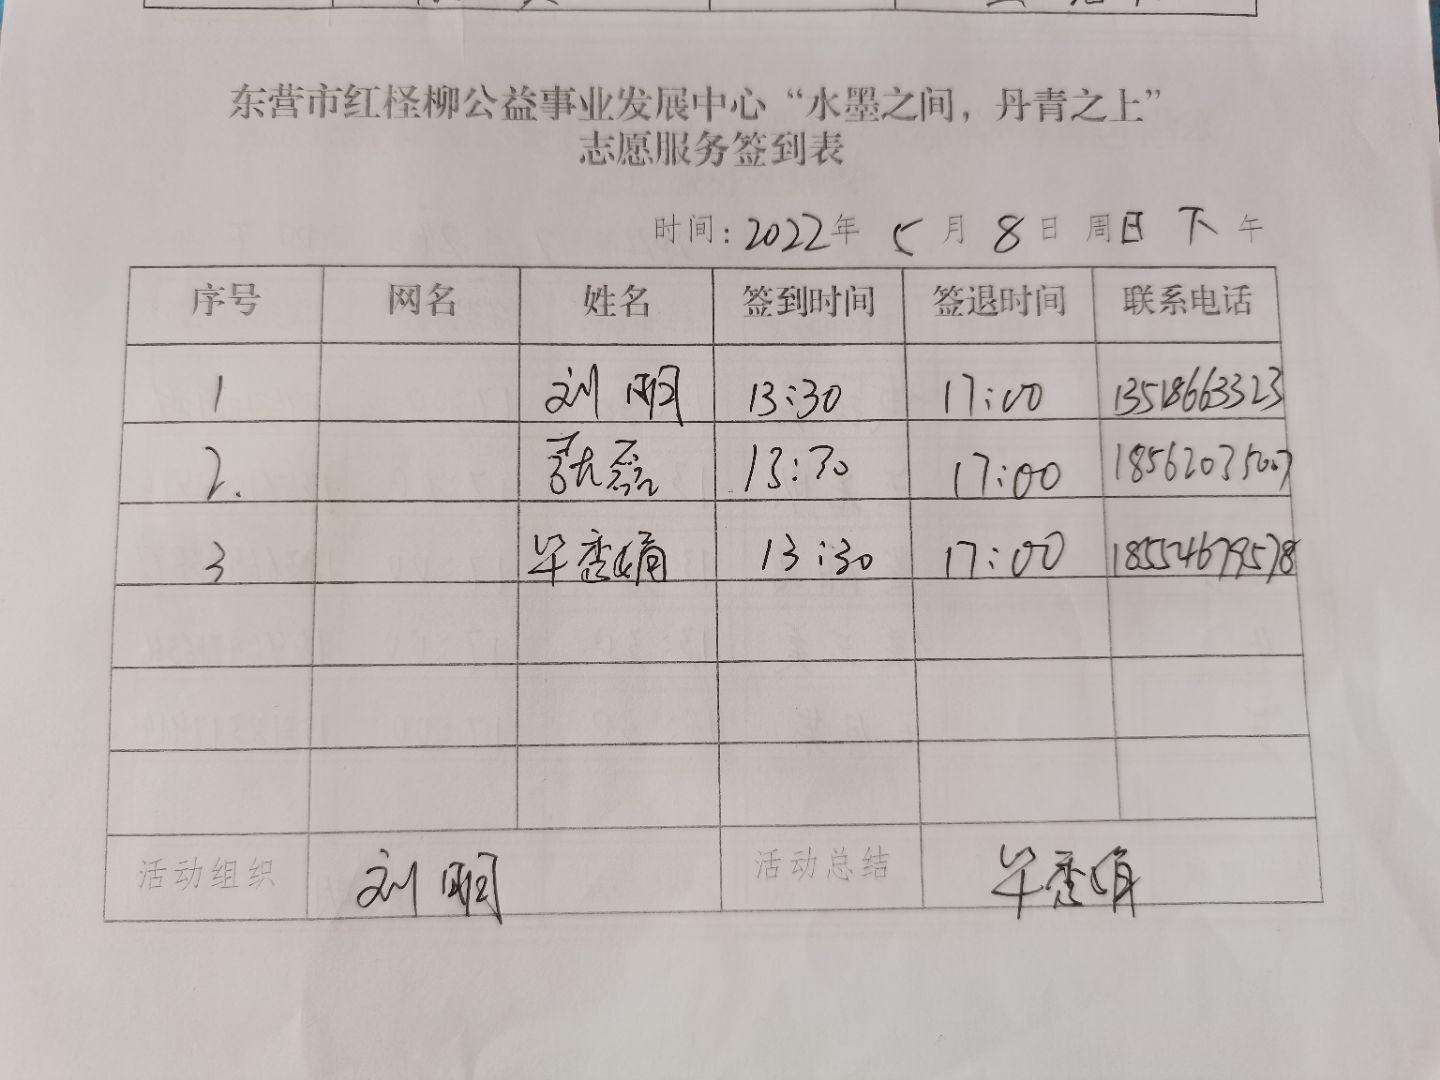 东营市红柽柳公益事业发展中心“水墨之间，丹青之上”
志愿服务签到表
时间：2022年 5月 8日 周日 下午
序号 网名 姓名 签到时间 签退时间 联系电话
1 刘明 13:30 17:00 13518663323
2. 张磊 13:30 17:00 18562035007
3 毕秀娟 13:30 17:00 18554679578
活动组织 刘明 活动总结 毕秀娟